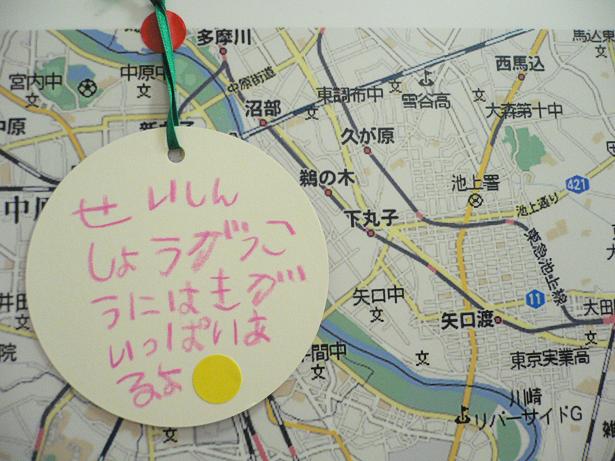 多摩川
宮内中
文
中原中
文
中原街道
沼部
東調布中
文
雪谷高
西馬込
大森第十中
文
久が原
池上署
421
池上通り
鵜の木
下丸子
東急池上線
矢口中
文
矢口渡
11
文
文
東京実業高
文
川崎
リバーサイドG
せいしん
しょうがっこ
うにはきが
いっぱいあ
るよ